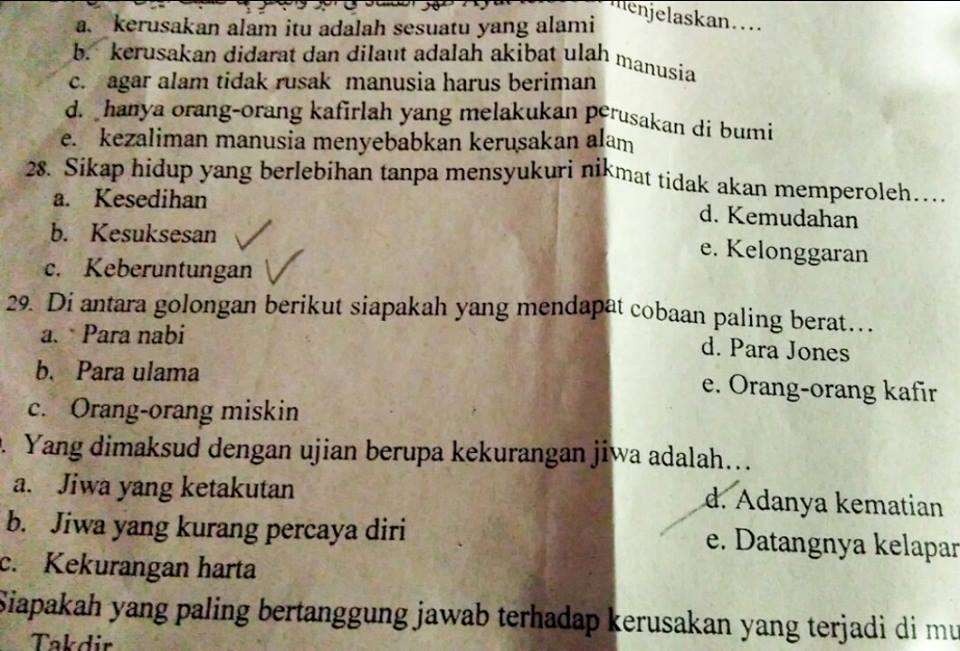 menjelaskan....
a. kerusakan alam itu adalah sesuatu yang alami
b. kerusakan didarat dan dilaut adalah akibat ulah manusia
c. agar alam tidak rusak manusia harus beriman
d. hanya orang-orang kafirlah yang melakukan perusakan di bumi
e. kezaliman manusia menyebabkan kerusakan alam
28. Sikap hidup yang berlebihan tanpa mensyukuri nikmat tidak akan memperoleh....
a. Kesedihan
b. Kesuksesan
c. Keberuntungan
d. Kemudahan
e. Kelonggaran
29. Di antara golongan berikut siapakah yang mendapat cobaan paling berat...
a. Para nabi
b. Para ulama
c. Orang-orang miskin
d. Para Jones
e. Orang-orang kafir
. Yang dimaksud dengan ujian berupa kekurangan jiwa adalah...
a. Jiwa yang ketakutan
b. Jiwa yang kurang percaya diri
c. Kekurangan harta
d. Adanya kematian
e. Datangnya kelapar
Siapakah yang paling bertanggung jawab terhadap kerusakan yang terjadi di mu
Takdir